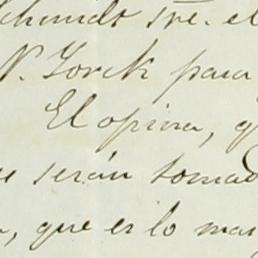 sre. el
N. Yorck para
El opina, q
serán tomad
, que es lo mas